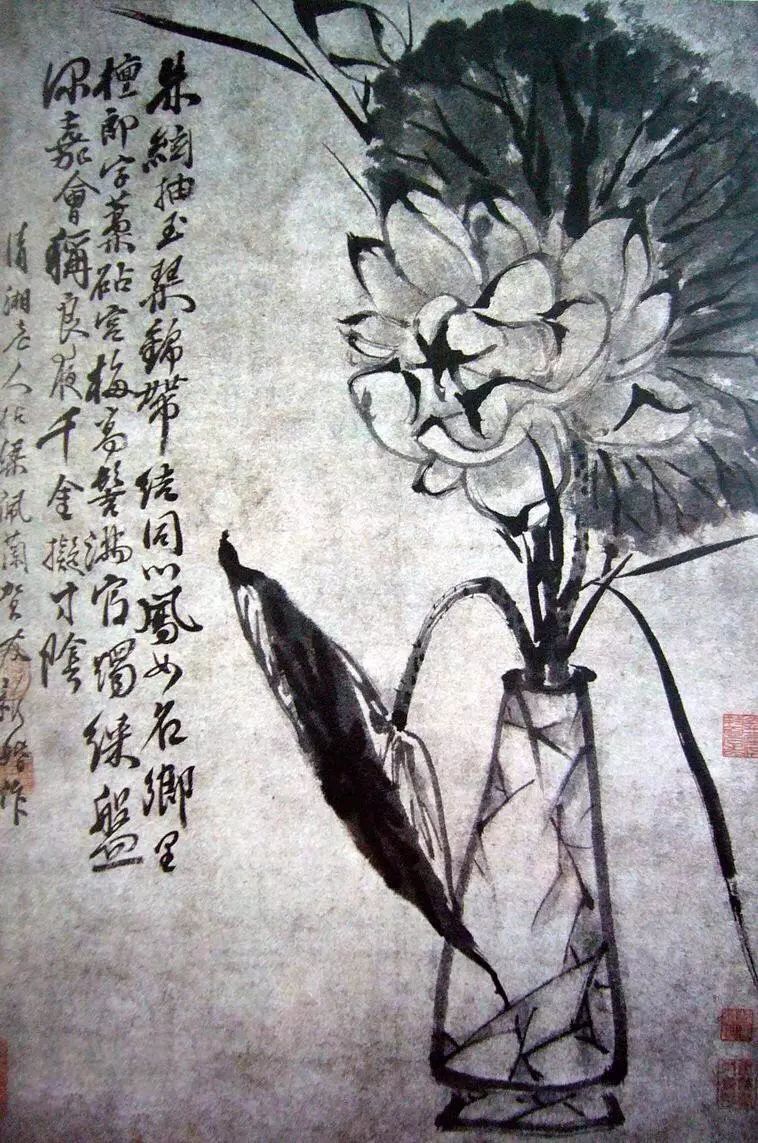 朱絃抽玉琴錦帶結同心鳳女名鄉里
檀郎字藁砧宮梅高髻滿官燭綵盤
深嘉會稱良夜千金擬寸陰
清湘老人梁佩蘭賀友新婚作